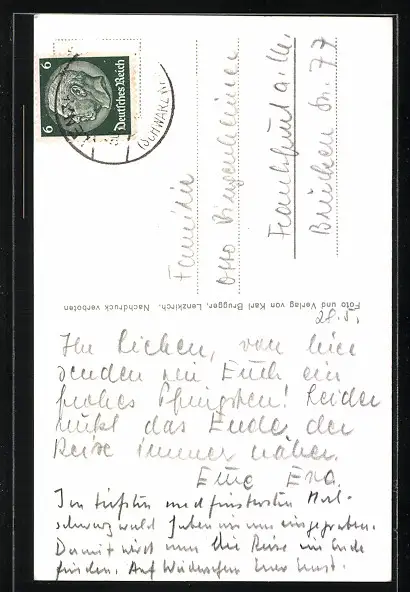 6
6
Deutsches Reich
(SCHWARZW
Familie
Otto
Frankfurt a. M.
Brücken Str. 77
Foto und Verlag von Karl Brugger, Lenzkirch. Nachdruck verboten
28.5.
Ihr Lieben, von hier
senden wir Euch ein
frohes Pfingsten! Leider
rückt das Ende der
Reise immer näher.
Eure Eva.
Im tiefsten und finstersten Hoch-
schwarzwald haben wir uns eingegraben.
Damit wird nun die Reise ihr Ende
finden. Auf Wiedersehen Euer